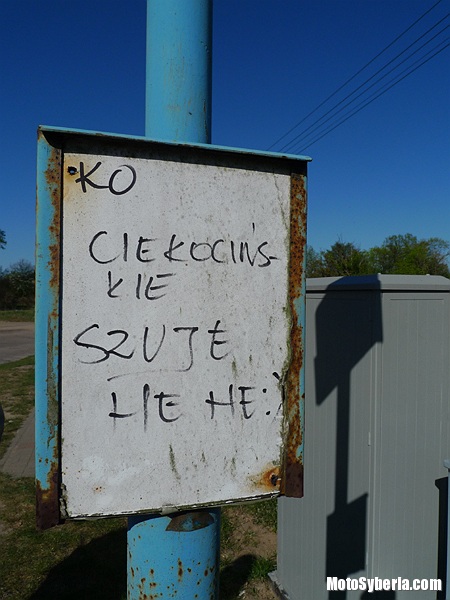 KO
CIEKOCIŃS-
KIE
SZUJE
HE HE:)
MotoSyberia.com